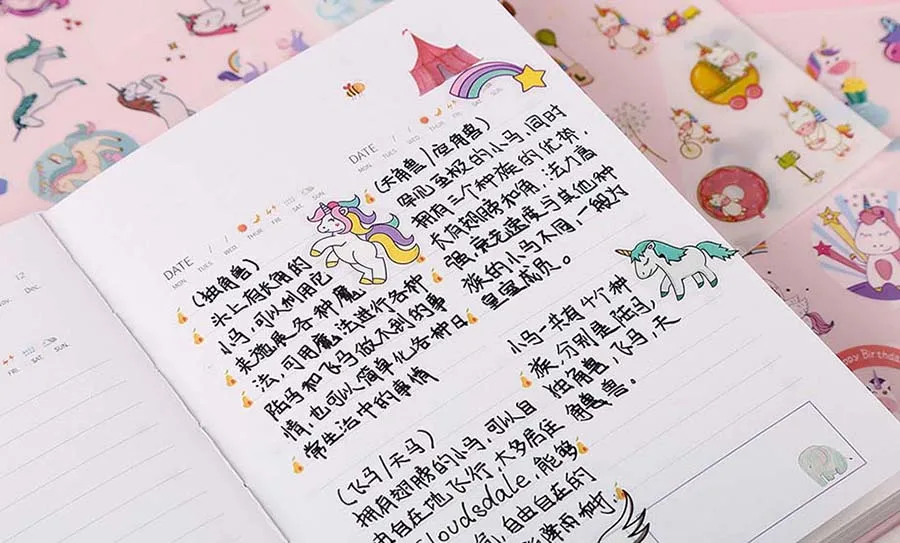 12
Dec.
FRI. SAT. SUN.
DATE / /
MON TUES WED THUR FRI SAT SUN
(独角兽)
头上有长角的
小马,可以利用它
来施展各种魔
法,可用魔法进行各种
陆马和飞马做不到的事
情,也可以简单化各种日
常生活中的事情
(飞马/天马)
拥有翅膀的小马,可以自
由自在地飞行,大多居住
Cloudsdale,能够
自由自在的
降雨
DATE / /
MON TUES WED THUR FRI SAT SUN
(天角兽/恒角兽)
罕见至极的小马,同时
拥有三个种族的优势,
长有翅膀和角,法力高
强,速度与其他种
族的小马不同,一般为
皇室成员。
小马一共有4个种
族,分别是陆马,
独角兽,飞马,天
角兽。
Happy Birthday